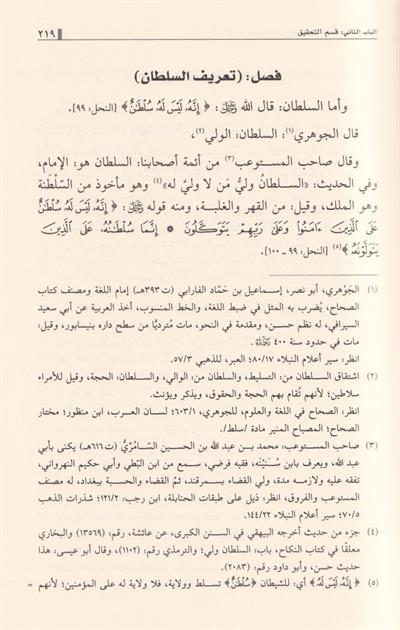 الباب الثاني: قسم التحقيق ٢١٩
فصل: (تعريف السلطان)
وأما السلطان: قال الله ﷻ: ﴿ إِنَّهُ لَيْسَ لَهُ سُلْطَانٌ ﴾ [النحل: ٩٩].
قال الجوهري(١): السلطان: الولي(٢)،
وقال صاحب المستوعب(٣) من أئمة أصحابنا: السلطان هو: الإمام،
وفي الحديث: «السلطانُ وليُّ مَن لا وليَّ له»(٤) وهو مأخوذ من السَّلْطَنة
وهو الملك، وقيل: من القهر والغلبة، ومنه قوله ﷻ: ﴿ إِنَّهُ لَيْسَ لَهُ سُلْطَانٌ
عَلَى الَّذِينَ ءَامَنُواْ وَعَلَى رَبِّهِمْ يَتَوَكَّلُونَ * إِنَّمَا سُلْطَانُهُ عَلَى الَّذِينَ
يَتَوَلَّوْنَهُ ﴾(٥) [النحل: ٩٩ - ١٠٠].
(١) الجَوْهَري، أبو نصر، إسماعيل بن حَمَّاد الفارابي (ت٣٩٣هـ) إمام اللغة ومصنف كتاب
الصحاح، يُضرب به المثل في ضبط اللغة، والخط المنسوب، أخذ العربية عن أبي سعيد
السيرافي، له نظم حسن، ومقدمة في النحو، مات مُترديًا من سطح داره بنيسابور، وقيل:
مات في حدود سنة ٤٠٠
انظر: سير أعلام النبلاء ٨٠/١٧؛ العبر، للذهبي ٥٧/٣.
(٢) اشتقاق السلطان من: التسليط، والسلطان من: الوالي، والسلطان: الحجة، وقيل للأمراء
سلاطين؛ لأنهم تُقام بهم الحجة والحقوق، ويذكر ويؤنث.
انظر: الصحاح في اللغة والعلوم، للجوهري، ٦٠٣/١؛ لسان العرب، ابن منظور؛ مختار
الصحاح؛ المصباح المنير مادة /سلط/.
(٣) صاحب المستوعب: محمد بن عبد الله بن الحسين السَّامُرِّيُّ (ت٦١٦هـ) يكنى بأبي
عبد الله، ويعرف بابن سُنَيْنَه، فقيه فرضي، سمع من ابن البَطّي وأبي حكيم النهرواني،
تفقه عليه ولازمه مدة، ولي القضاء بسمرقند، ثمَّ القضاء والحسبة ببغداد، له مصنف
المستوعب والفروق، انظر: ذيل على طبقات الحنابلة، ابن رجب: ١٢١/٢؛ شذرات الذهب
٧٠/٥؛ سير أعلام النبلاء ١٤٤/٢٢.
(٤) جزء من حديث أخرجه البيهقي في السنن الكبرى، عن عائشة، رقم: (١٣٥٦٩) والبخاري
معلقًا في كتاب النكاح، باب: السلطان ولي؛ والترمذي رقم: (١١٠٢)، وقال أبو عيسى: هذا
حديث حسن، وأبي داود رقم: (٢٠٨٣).
(٥) ﴿ إِنَّهُ لَيْسَ لَهُ ﴾ أي: للشيطان ﴿ سُلْطَانٌ ﴾ تسلط وولاية، فلا ولاية له على المؤمنين؛ لأنهم =